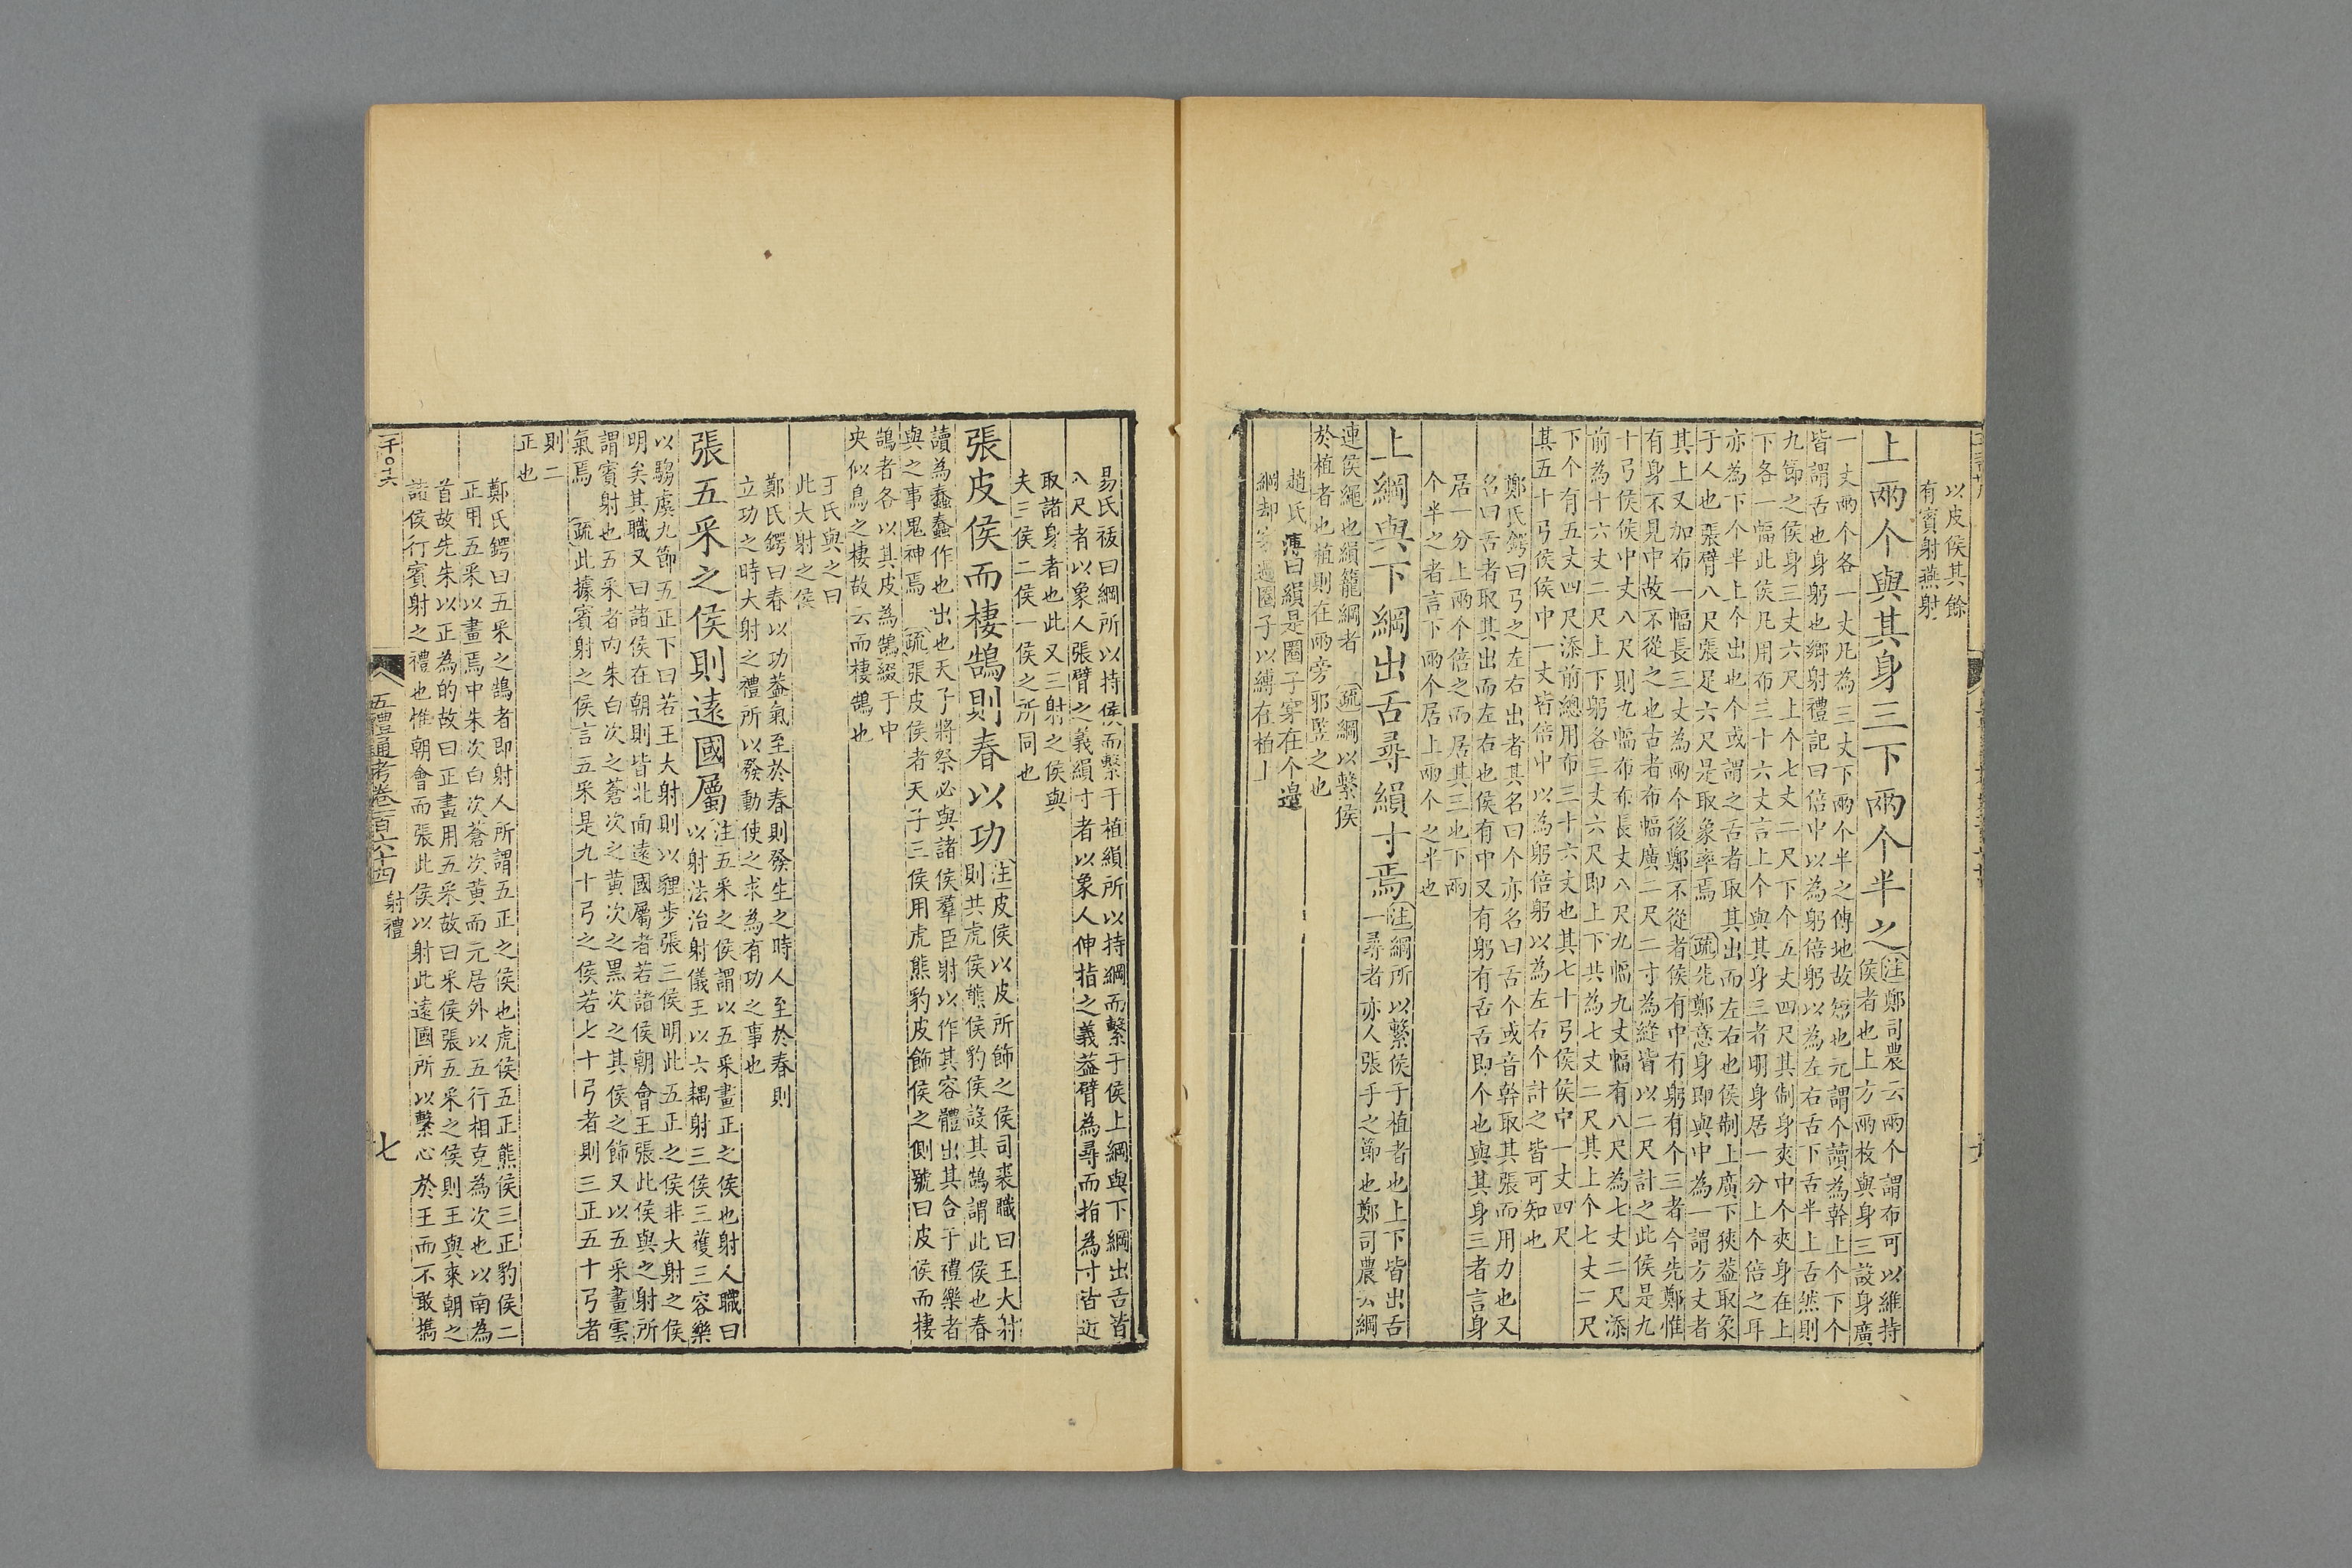 以皮侯其餘
有賓射燕射
上兩个與其身三下兩个半之
注鄭司農云兩个謂布可以維持
侯者也上方兩枚與身三設身廣
一丈兩个各一丈凡為三丈下兩个半之傅地故短也元謂个讀為幹上个下个
皆謂舌也身躬也鄉射禮記曰倍中以為躬倍躬以為左右舌下舌半上舌然則
九節之侯身三丈六尺上个七丈二尺下个五丈四尺其制身夾中个夾身在上
下各一幅此侯凡用布三十六丈言上个與其身三者明身居一分上个倍之耳
亦為下个半上个出也个或謂之舌者取其出而左右也侯制上廣下狹葢取象
于人也張臂八尺張足六尺是取象率焉 疏先鄭意身即與中為一謂方丈者
其上又加布一幅長三丈為兩个後鄭不從者侯有中有躬有个三者今先鄭惟
有身不見中故不從之也古者布幅廣二尺二寸為縫皆以二尺計之此侯是九
十弓侯侯中丈八尺則九幅布布長丈八尺九幅九丈幅有八尺為七丈二尺添
前為十六丈二尺上下躬各三丈六尺即上下共為七丈二尺其上个七丈二尺
下个有五丈四尺添前總用布三十六丈也其七十弓侯侯中一丈四尺
其五十弓侯侯中一丈皆倍中以為躬倍躬以為左右个計之皆可知也
鄭氏鍔曰弓之左右出者其名曰个亦名曰舌个或音幹取其張而用力也又
名曰舌者取其出而左右也侯有中又有躬有舌舌即个也與其身三者言身
居一分上兩个倍之而居其三也下兩
个半之者言下兩个居上兩个之半也
上綱與下綱出舌尋縜寸焉
注綱所以繫侯于植者也上下皆出舌
一尋者亦人張手之節也鄭司農云綱
連侯繩也縜籠綱者 疏綱以繫侯
於植者也植則在兩旁邪豎之也
趙氏溥曰縜是圈子穿在个邊
綱却穿過圈子以縛在植上
易氏祓曰綱所以持侯而繫于植縜所以持綱而繫于侯上綱與下綱出舌皆
八尺者以象人張臂之義縜寸者以象人伸指之義葢臂為尋而指為寸皆近
取諸身者也此又三射之侯與
夫三侯二侯一侯之所同也
張皮侯而棲鵠則春以功
注皮侯以皮所飾之侯司裘職曰王大射
則共虎侯熊侯豹侯設其鵠謂此侯也春
讀為蠢蠢作也出也天子將祭必與諸侯羣臣射以作其容體出其合于禮樂者
與之事鬼神焉 疏張皮侯者天子三侯用虎熊豹皮飾侯之側號曰皮侯而棲
鵠者各以其皮為鵠綴于中
央似鳥之棲故云而棲鵠也
王氏與之曰
此大射之侯
鄭氏鍔曰春以功葢氣至於春則發生之時人至於春則
立功之時大射之禮所以發動使之求為有功之事也
張五采之侯則遠國屬
注五采之侯謂以五采畫正之侯也射人職曰
以射法治射儀王以六耦射三侯三獲三容樂
以騶虞九節五正下曰若王大射則以貍步張三侯明此五正之侯非大射之侯
明矣其職又曰諸侯在朝則皆北面遠國屬者若諸侯朝會王張此侯與之射所
謂賓射也五采者內朱白次之蒼次之黃次之黑次之其侯之飾又以五采畫雲
氣焉 疏此據賓射之侯言五采是九十弓之侯若七十弓者則三正五十弓者
則二
正也
鄭氏鍔曰五采之鵠者即射人所謂五正之侯也虎侯五正熊侯三正豹侯二
正用五采以畫焉中朱次白次蒼次黃而元居外以五行相克為次也以南為
首故先朱以正為的故曰正畫用五采故曰采侯張五采之侯則王與來朝之
諸侯行賓射之禮也惟朝會而張此侯以射此遠國所以繫心於王而不敢攜
五禮通考卷一百六十四 射禮
七